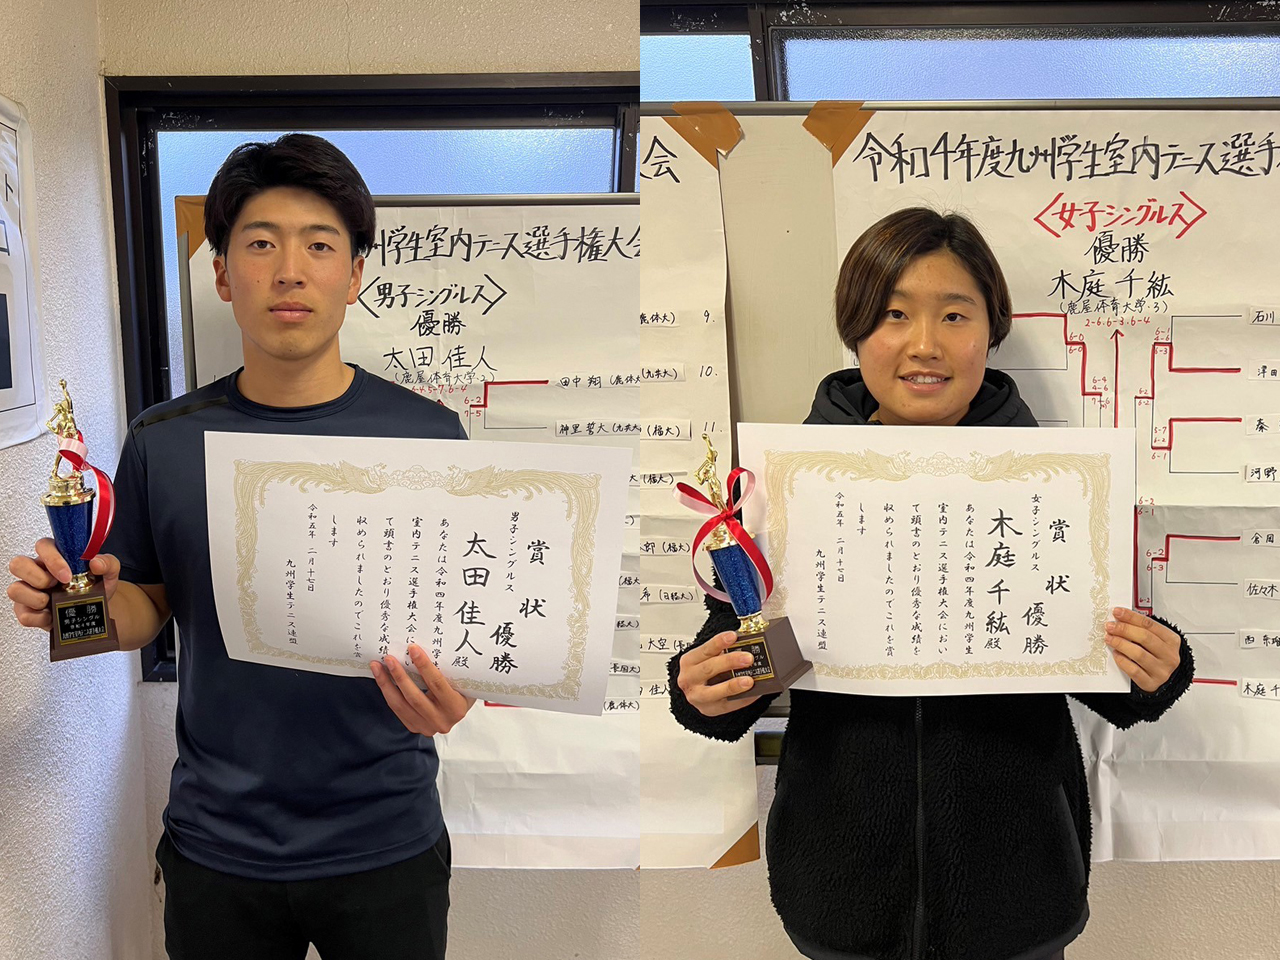 州学生室内テニス選手権大会
〈男子シングルス〉
優勝
太田 佳人
(鹿屋体育大学・2)
6-4 5-7 6-4
6-2
7-5
田中 翔(鹿体
神里 誓大(九共大
(鹿体大)
賞状
優勝
男子シングルス
太田佳人殿
あなたは令和四年度九州学生
室内テニス選手権大会におい
て頭書のとおり優秀な成績を
収められましたのでこれを賞
します
令和五年 二月十七日
九州学生テニス連盟
優勝
男子シングル
会
鹿体大) 9.
(九共大) 10.
(福大) 11.
(福大)
(福大)
(日経大)
大空
佳人
令和4年度九州学生室内テニス選手
〈女子シングルス〉
優勝
木庭 千紘
(鹿屋体育大学・3)
2-6, 6-3, 6-4
6-0
6-0
6-4
4-6
7-6
4-6
6-1
6-3
6-2
5-7
6-2
6-1
6-2
6-1
6-2
6-3
6-2
石川
津田
秦
河野
倉岡
佐々木
西
木庭 千
賞状
優勝
女子シングルス
木庭千紘殿
あなたは令和四年度九州学生
室内テニス選手権大会におい
て頭書のとおり優秀な成績を
収められましたのでこれを賞
します
令和五年 二月十七日
九州学生テニス連盟